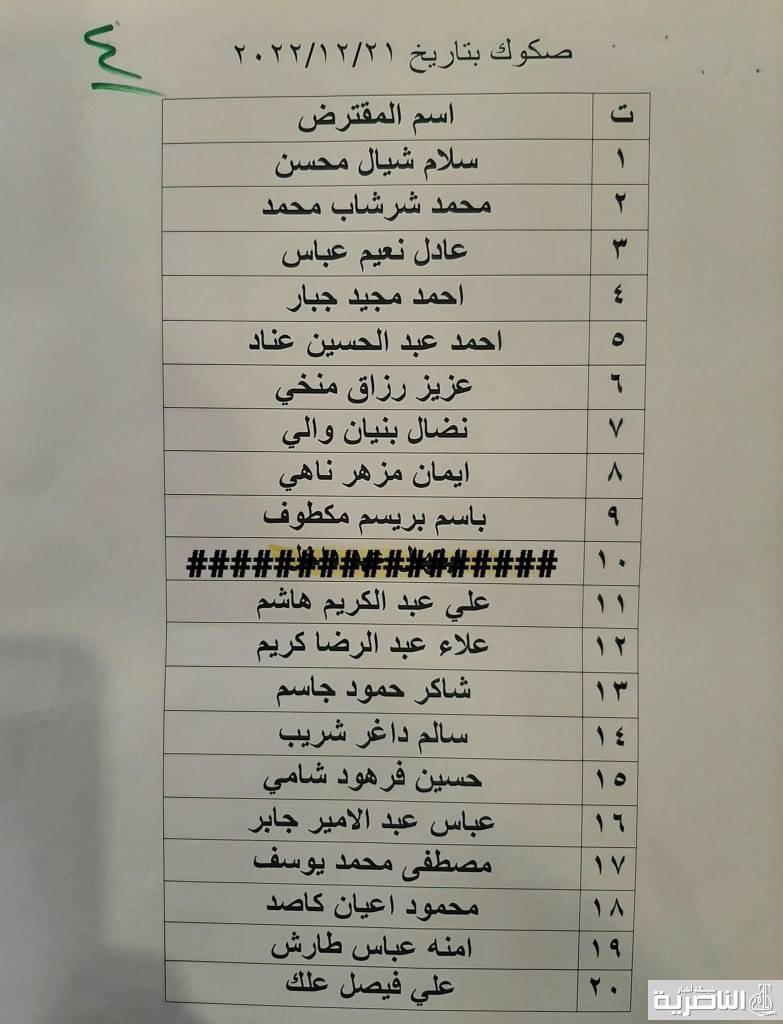 ٤
صكوك بتاريخ ٢٠٢٢/١٢/٢١
ت اسم المقترض
١ سلام شيال محسن
٢ محمد شرشاب محمد
٣ عادل نعيم عباس
٤ احمد مجيد جبار
٥ احمد عبد الحسين عناد
٦ عزيز رزاق منخي
٧ نضال بنيان والي
٨ ايمان مزهر ناهي
٩ باسم بريسم مكطوف
١٠ ##################
١١ علي عبد الكريم هاشم
١٢ علاء عبد الرضا كريم
١٣ شاكر حمود جاسم
١٤ سالم داغر شريب
١٥ حسين فرهود شامي
١٦ عباس عبد الامير جابر
١٧ مصطفى محمد يوسف
١٨ محمود اعيان كاصد
١٩ امنه عباس طارش
٢٠ علي فيصل علك
شبكة أخبار
الناصرية